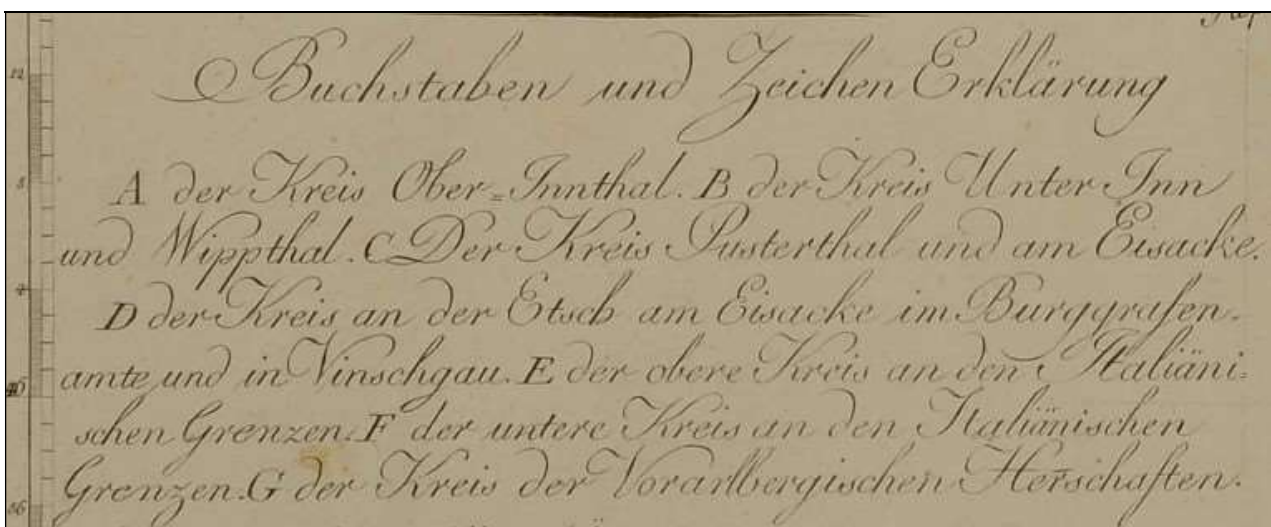 Buchstaben und Zeichen Erklärung
A der Kreis Ober=Innthal. B der Kreis Unter Inn
und Wippthal. C Der Kreis Pusterthal und am Eisacke.
D der Kreis an der Etsch am Eisacke im Burggrafen-
amte und in Vinschgau. E der obere Kreis an den Italiäni=
schen Grenzen. F der untere Kreis an den Italiänischen
Grenzen. G der Kreis der Vorarlbergischen Herschaften.